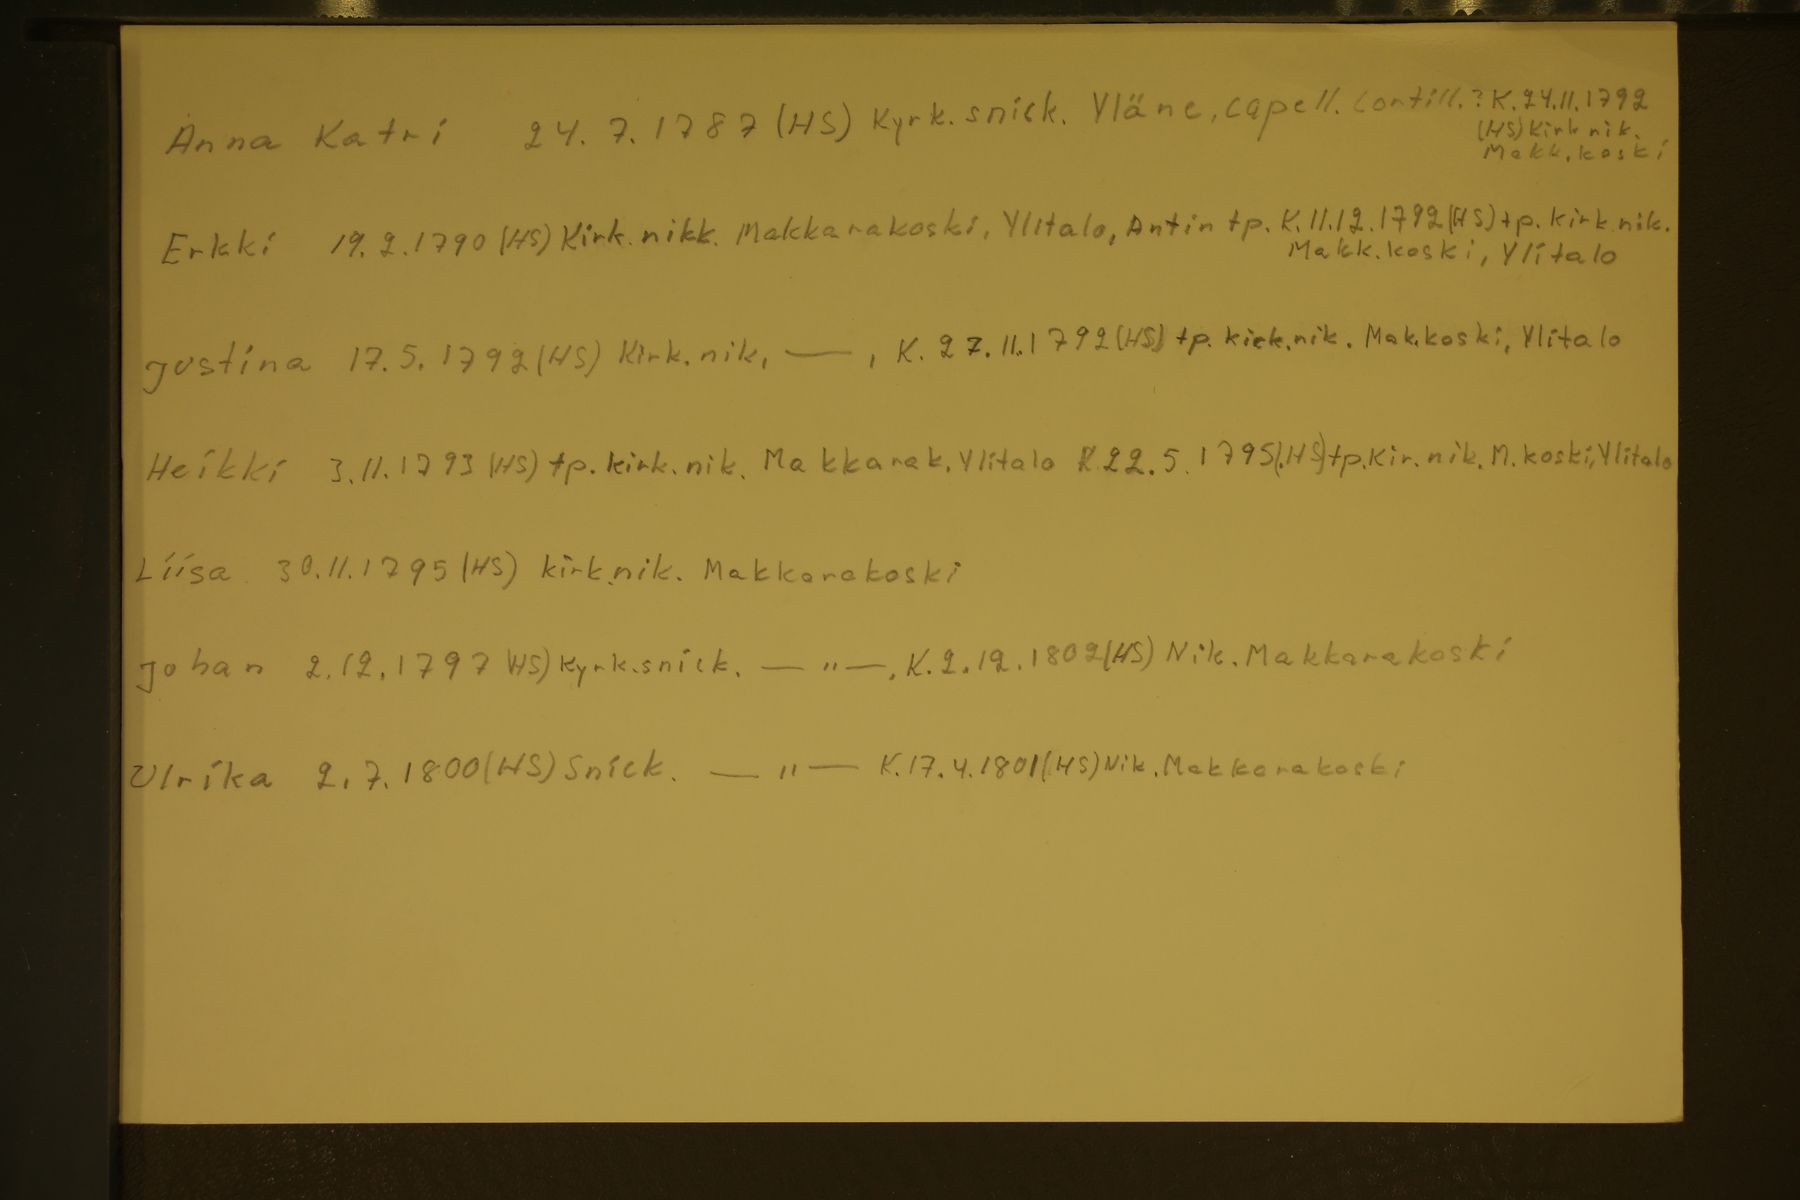 Anna Katri 24.7.1787 (HS) Kyrk.snick. Yläne, capell. Contill.? K.24.11.1792
(HS) Kirk nik.
Makk.koski
Erkki 19.2.1790 (HS) Kirk.nikk. Makkarakoski, Ylitalo, Antin tp. K.11.12.1792 (HS) tp. kirk.nik.
Makk.koski, Ylitalo
Justina 17.5.1792 (HS) Kirk.nik, —, K. 27.11.1792 (HS) tp. kirk.nik. Mak.koski, Ylitalo
Heikki 3.11.1793 (HS) tp. kirk.nik. Makkarak. Ylitalo K 22.5.1795 (HS) tp. Kir.nik. M.koski, Ylitalo
Liisa 30.11.1795 (HS) kirk.nik. Makkarakoski
Johan 2.12.1797 HS) Kyrk.snick. — " —. K.2.12.1802 (HS) Nik. Makkarakoski
Ulrika 2.7.1800 (HS) Snick. — " — K.17.4.1801 (HS) Nik. Makkarakoski